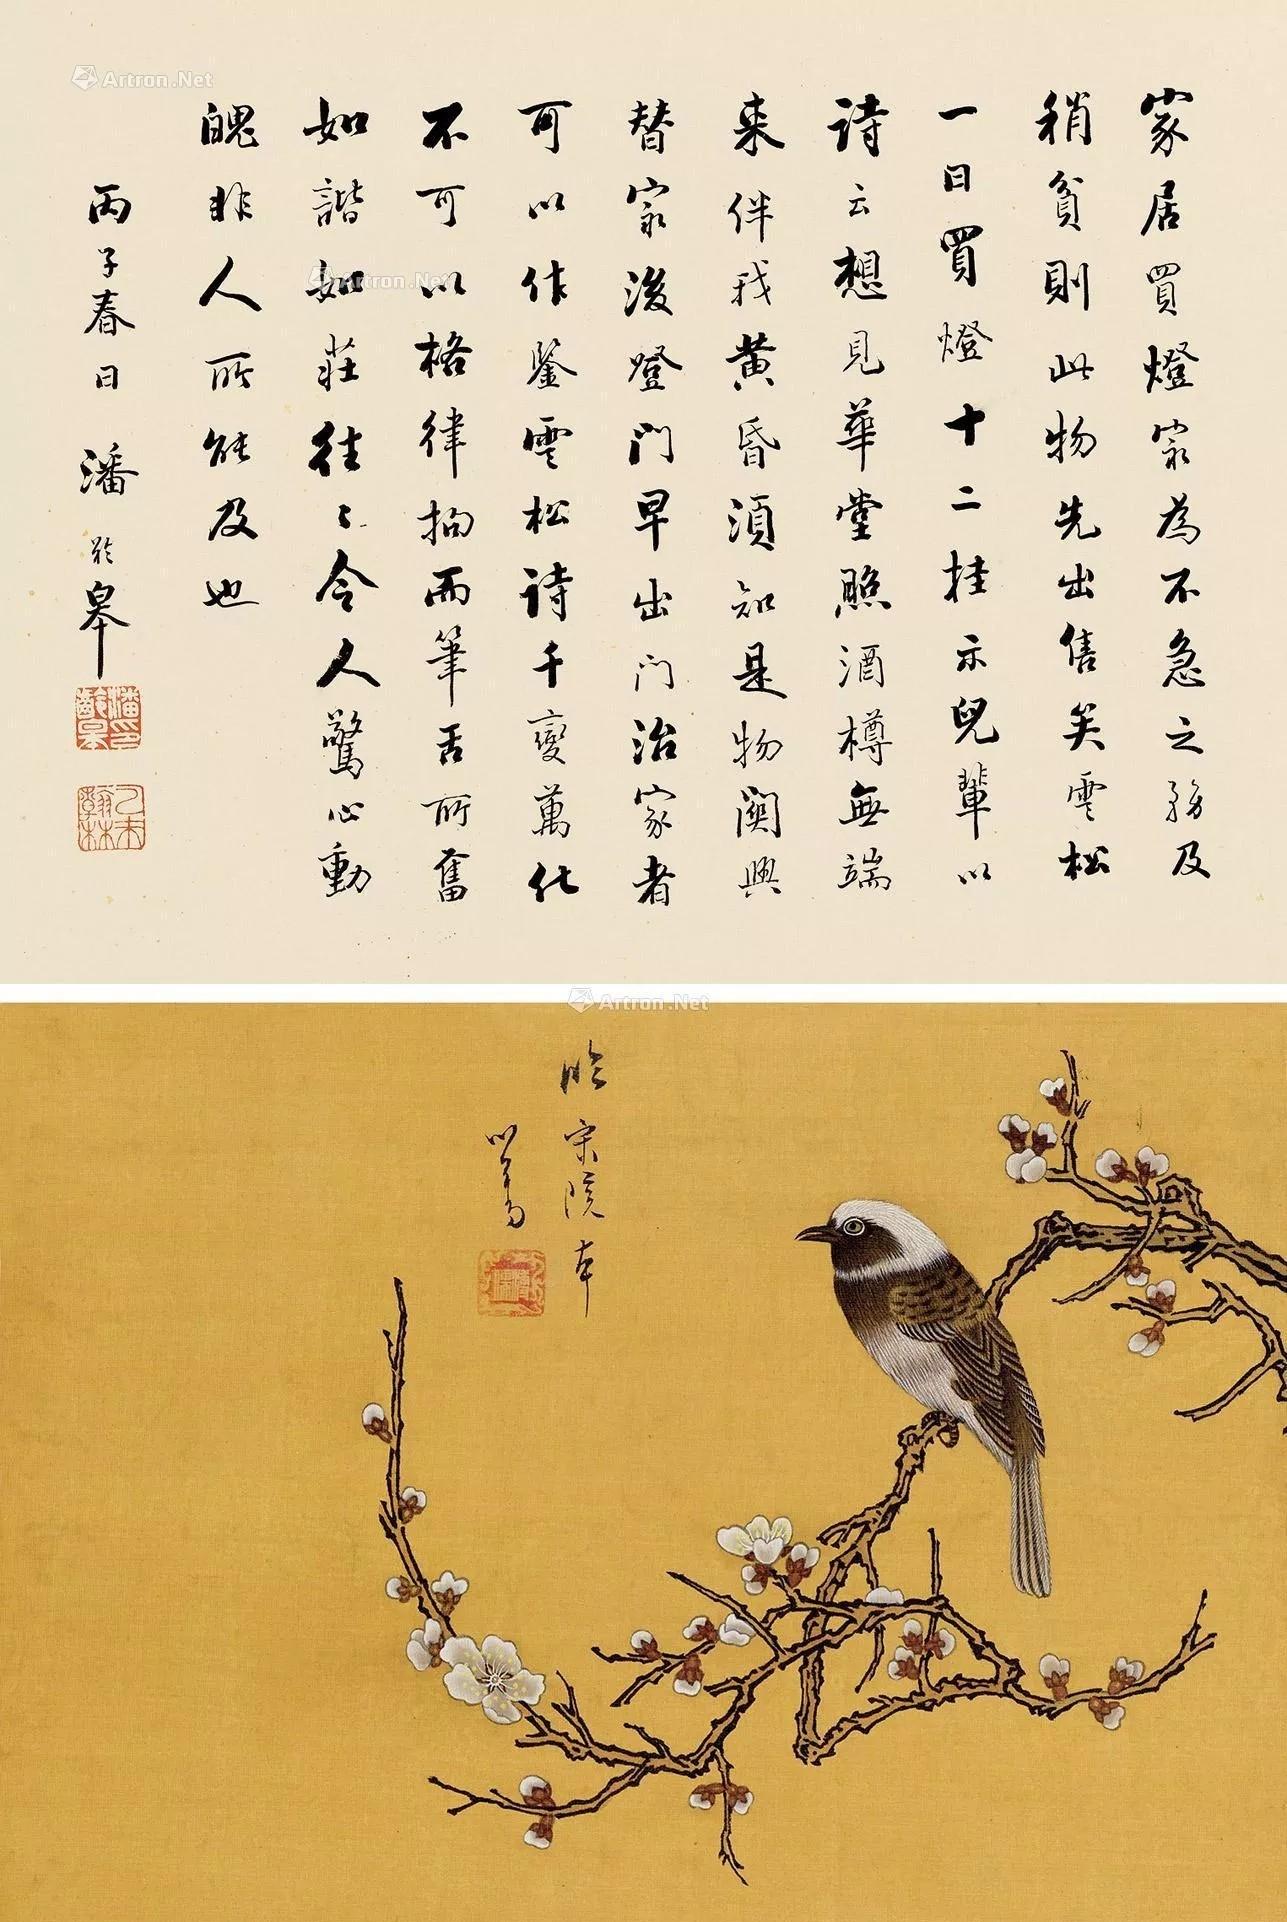 家居買燈家為不急之務及
稍貧則此物先出售矣雲松
一日買燈十二挂示兒輩以
詩云想見華堂照酒樽無端
来伴我黄昏須知是物関興
替家後燈門早出門治家者
可以作鑒雲松詩千變萬化
不可以格律拘而筆舌所奮
如諧如莊往々令人驚心動
魄非人所能及也
丙子春日 潘齡皋
潘齡皋印
乙未翰林
臨宋院本
心畬
Artron.Net
Artron.Net
Artron.Net